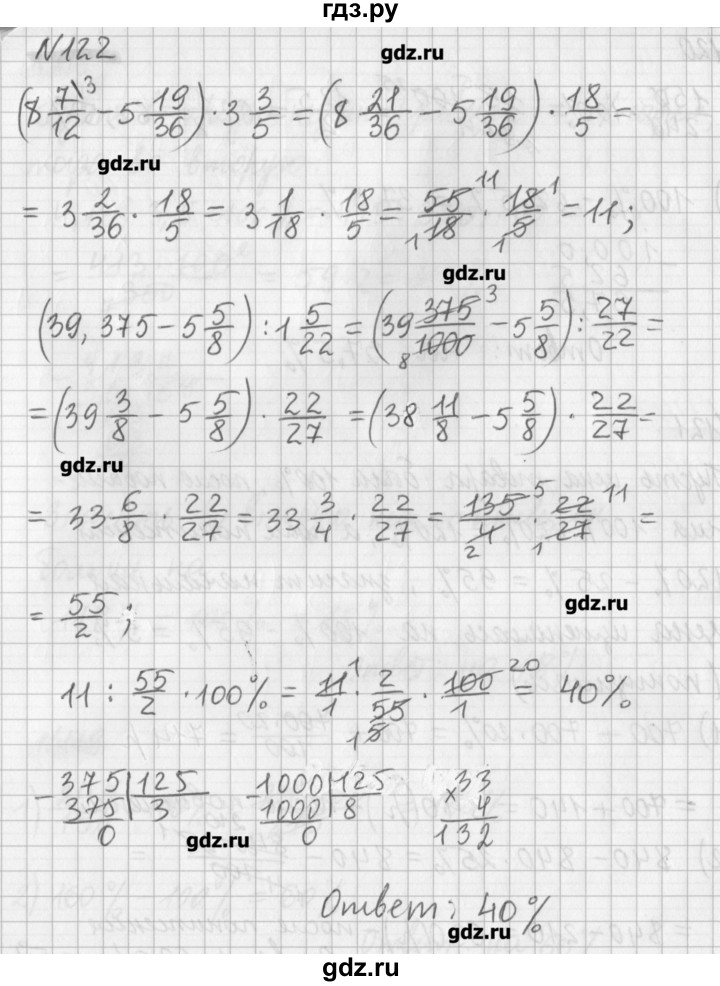 гдз.ру
N122
gdz.ru
(8 7/12 \3 − 5 19/36) · 3 3/5 = (8 21/36 − 5 19/36) · 18/5 =
gdz.ru
= 3 2/36 · 18/5 = 3 1/18 · 18/5 = 55 11/1 18 · 18 1/1 5 = 11;
gdz.ru
(39,375 − 5 5/8) : 1 5/22 = (39 375 3/8 1000 − 5 5/8) : 27/22 =
= (39 3/8 − 5 5/8) · 22/27 = (38 11/8 − 5 5/8) · 22/27 =
gdz.ru
= 33 6/8 · 22/27 = 33 3/4 · 22/27 = 135 5/2 4 · 22 11/1 27 =
= 55/2;
gdz.ru
11 : 55/2 · 100% = 11 1/1 · 2/1 55 5 · 100 20/1 = 40%
− 375 | 125 − 1000 | 125 × 33
375 | 3 1000 | 8 4
0 0 132
gdz.ru
Ответ: 40%
gdz.ru
gdz.ru